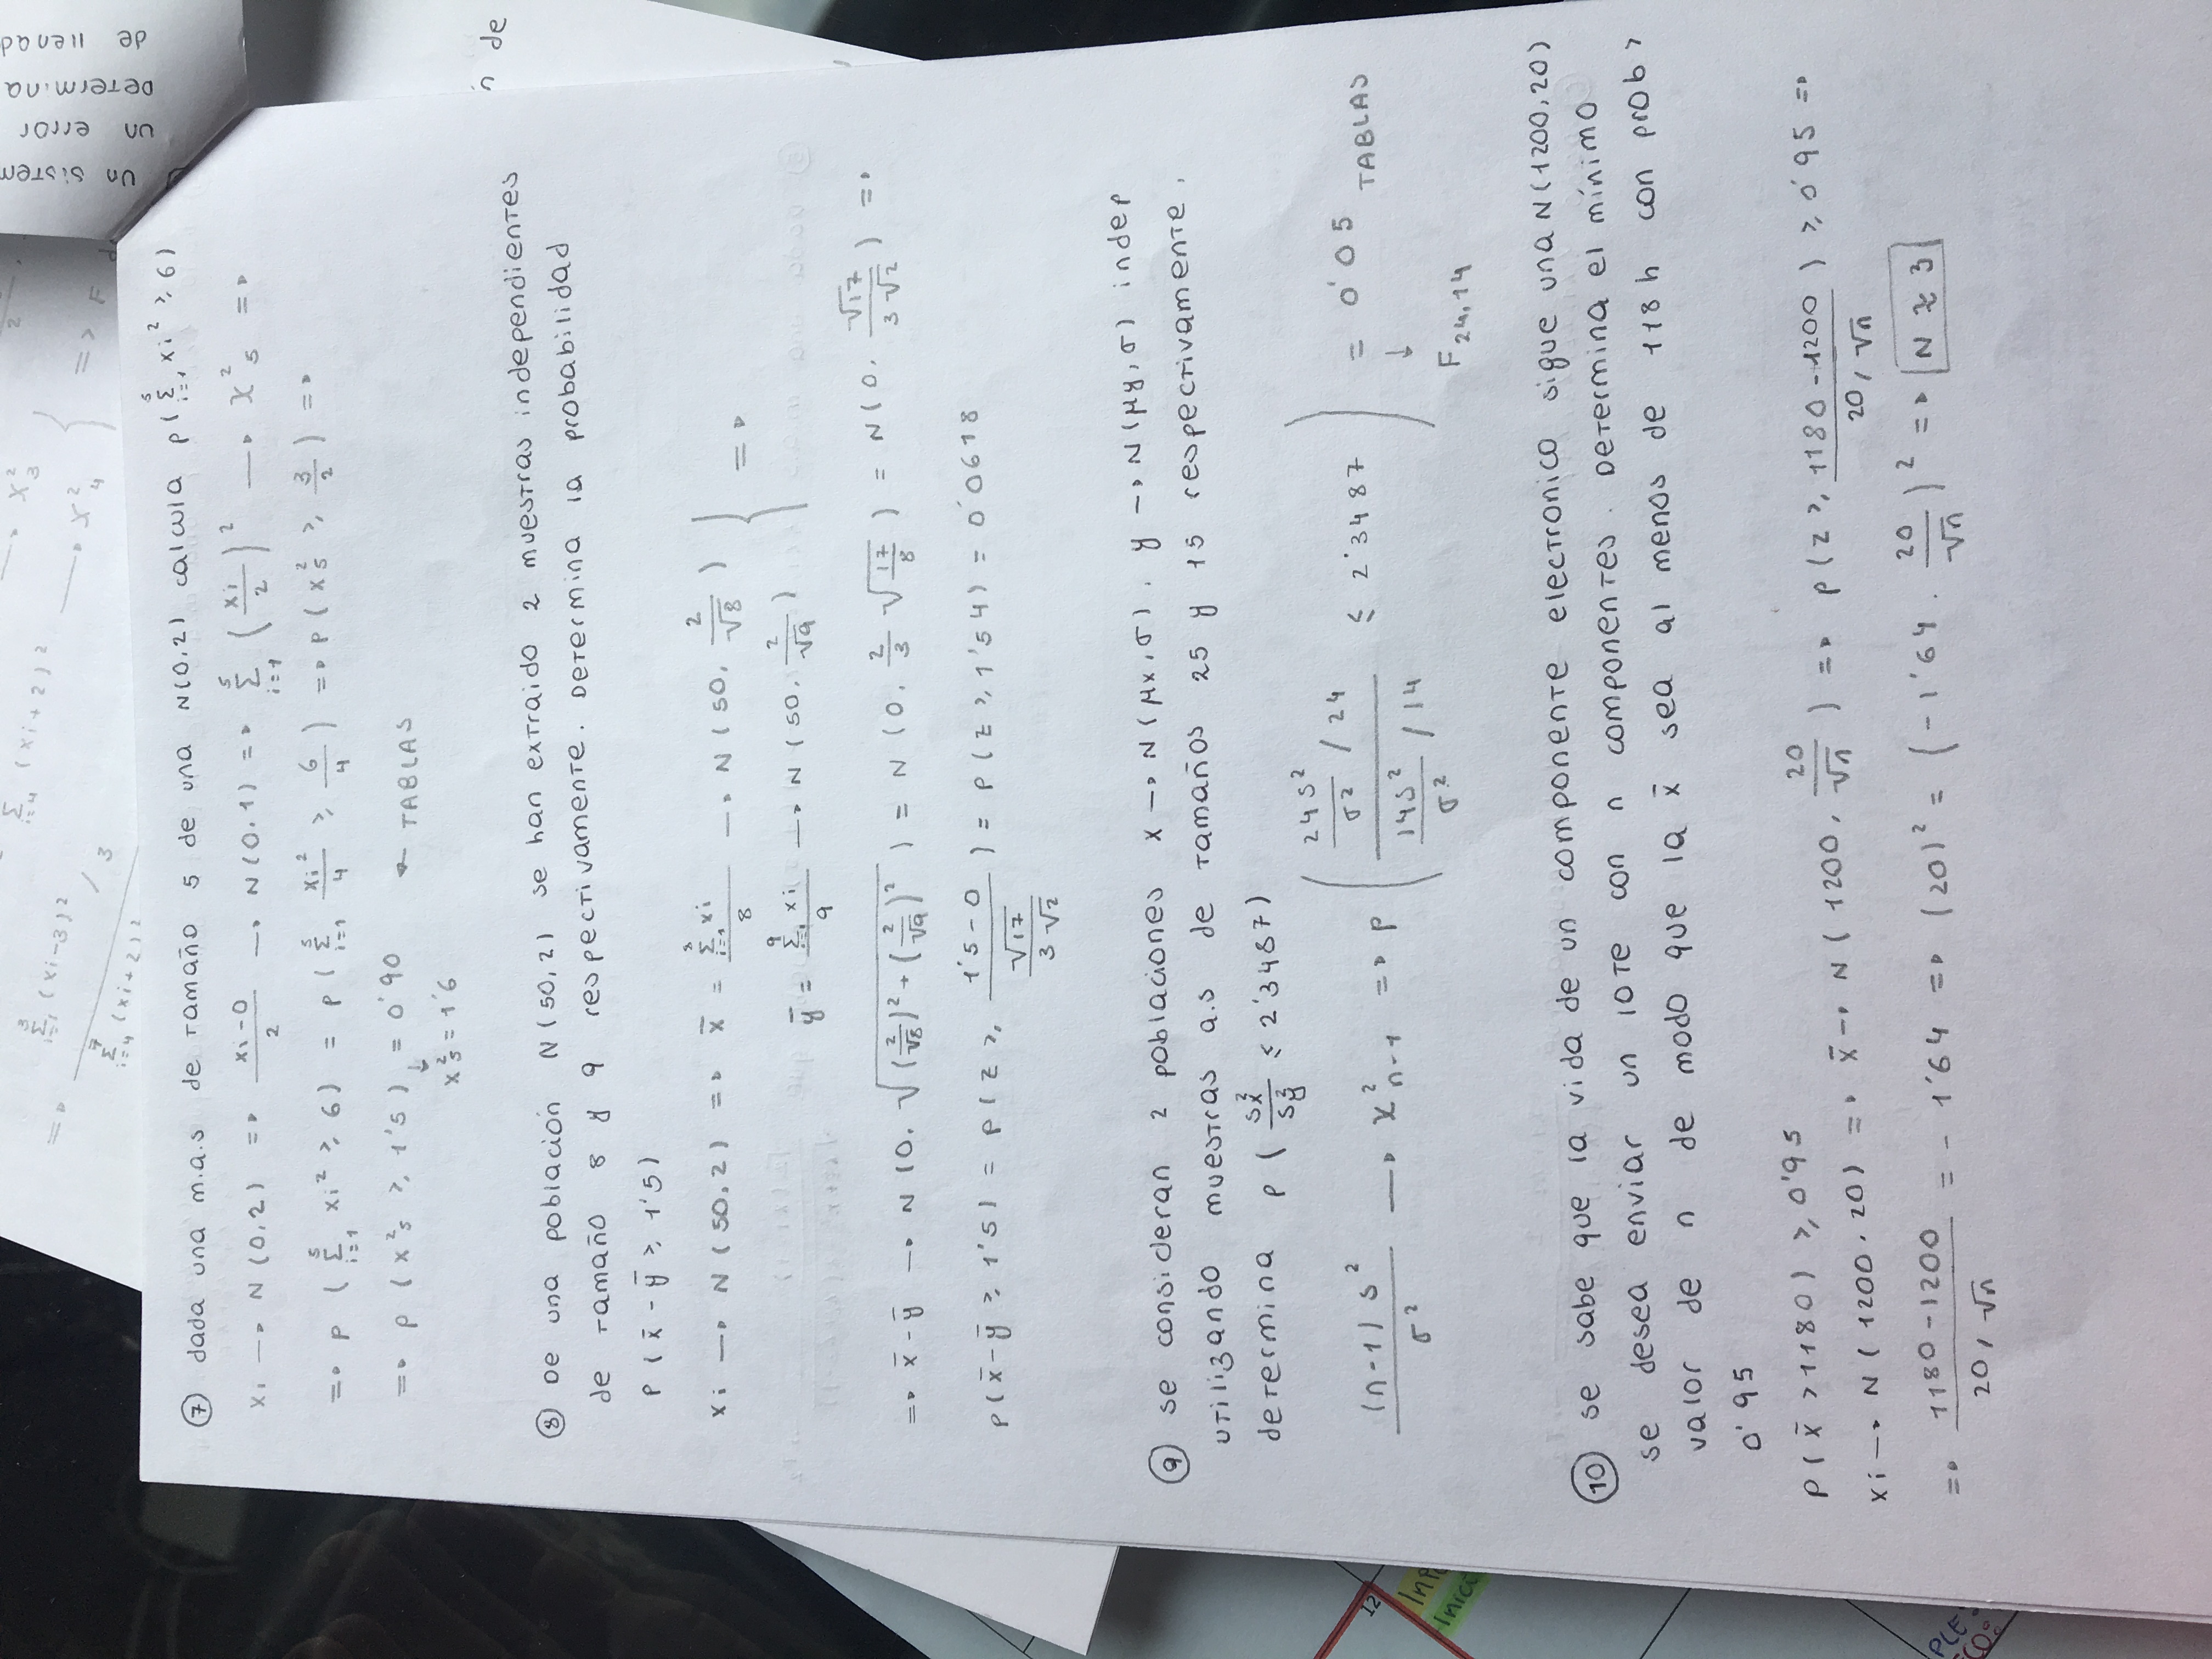 => Σ i=1 3 (xi-3)² / 3
Σ i=4 7 (xi+2)²
Σ i=4 (xi+2)² → χ²3
→ χ²4 } => F
2
un sistem
un error
Determina
de llenad
n de
⑦ dada una m.a.s de tamaño 5 de una N(0,2) calcula p(Σ i=1 5 xi² ≥ 6)
xi → N(0,2) => (xi-0)/2 → N(0,1) => Σ i=1 5 (xi/2)² → χ²5 =>
=> p(Σ i=1 5 xi² ≥ 6) = p(Σ i=1 5 xi²/4 ≥ 6/4) => p(χ²5 ≥ 3/2) =>
=> p(χ²5 ≥ 1'5) = 0'90 ← TABLAS
↓
χ²5 = 1'6
⑧ De una población N(50,2) se han extraido 2 muestras independientes
de tamaño 8 y 9 respectivamente. Determina la probabilidad
P(x̄ - ȳ ≥ 1'5)
xi → N(50,2) => x̄ = Σ i=1 8 xi / 8 → N(50, 2/√8) } =>
ȳ = Σ i=1 9 xi / 9 → N(50, 2/√9)
=> x̄ - ȳ → N(0, √((2/√8)² + (2/√9)²)) = N(0, 2/3 √(17/8)) = N(0, √17/(3√2)) =>
p(x̄ - ȳ ≥ 1'5) = p(z ≥ (1'5-0)/(√17/(3√2))) = p(z ≥ 1'54) = 0'0618
⑨ se consideran 2 poblaciones x → N(μx, σ), y → N(μy, σ) indep
utilizando muestras a.s de tamaños 25 y 15 respectivamente,
determina p(sx²/sy² ≤ 2'3487)
(n-1)s²/σ² → χ²n-1 => p((24s²/σ² / 24)/(14s²/σ² / 14) ≤ 2'3487) = 0'05 TABLAS
↓
F24,14
⑩ se sabe que la vida de un componente electronico sigue una N(1200,20)
se desea enviar un lote con n componentes. Determina el mínimo
valor de n de modo que la x̄ sea al menos de 118h con prob >
0'95
P(x̄ > 1180) ≥ 0'95
xi → N(1200,20) => x̄ → N(1200, 20/√n) => p(z ≥ (1180-1200)/(20/√n)) ≥ 0'95 =>
=> (1180-1200)/(20/√n) = -1'64 => (20)² = (-1'64 · 20/√n)² => N ≈ 3
12
Inic